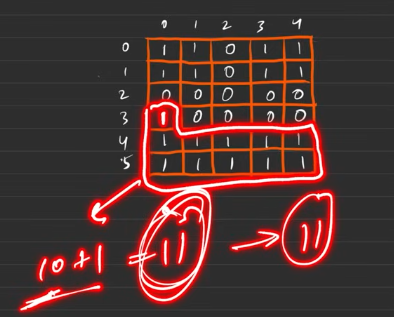 0 1 2 3 4
0 1 1 0 1 1
1 1 1 0 1 1
2 0 0 0 0 0
3 1 0 0 0 0
4 1 1 1 1 1
5 1 1 1 1 1
10 + 1 = 11 → 11